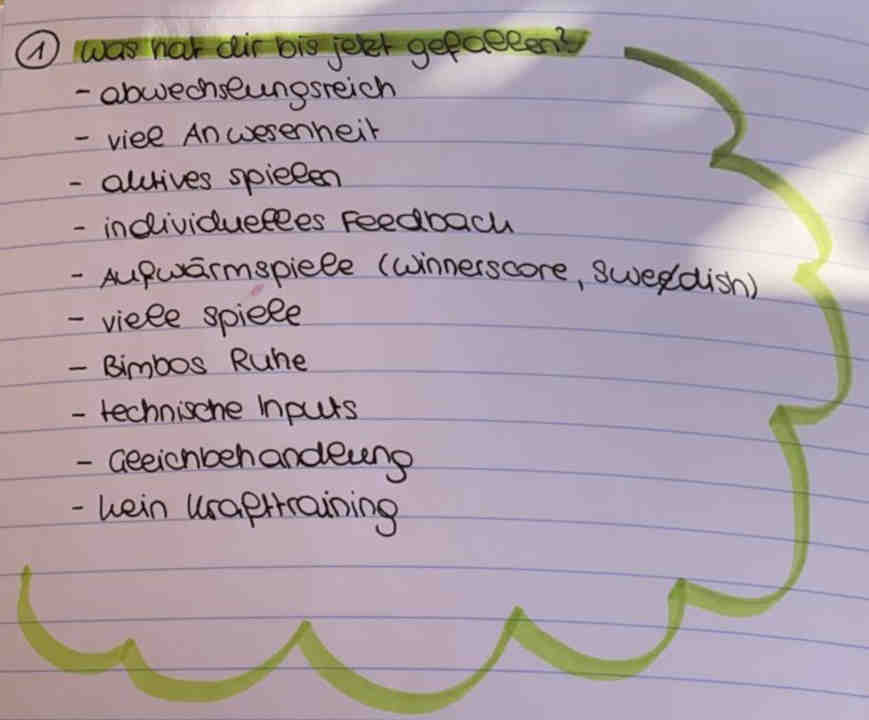 ① Was hat dir bis jetzt gefallen?
- abwechslungsreich
- viel Anwesenheit
- aktives spielen
- individuelles Feedback
- Aufwärmspiele (Winnerscore, Swedish)
- viele spiele
- Bimbos Ruhe
- technische Inputs
- Gleichbehandlung
- kein Krafttraining